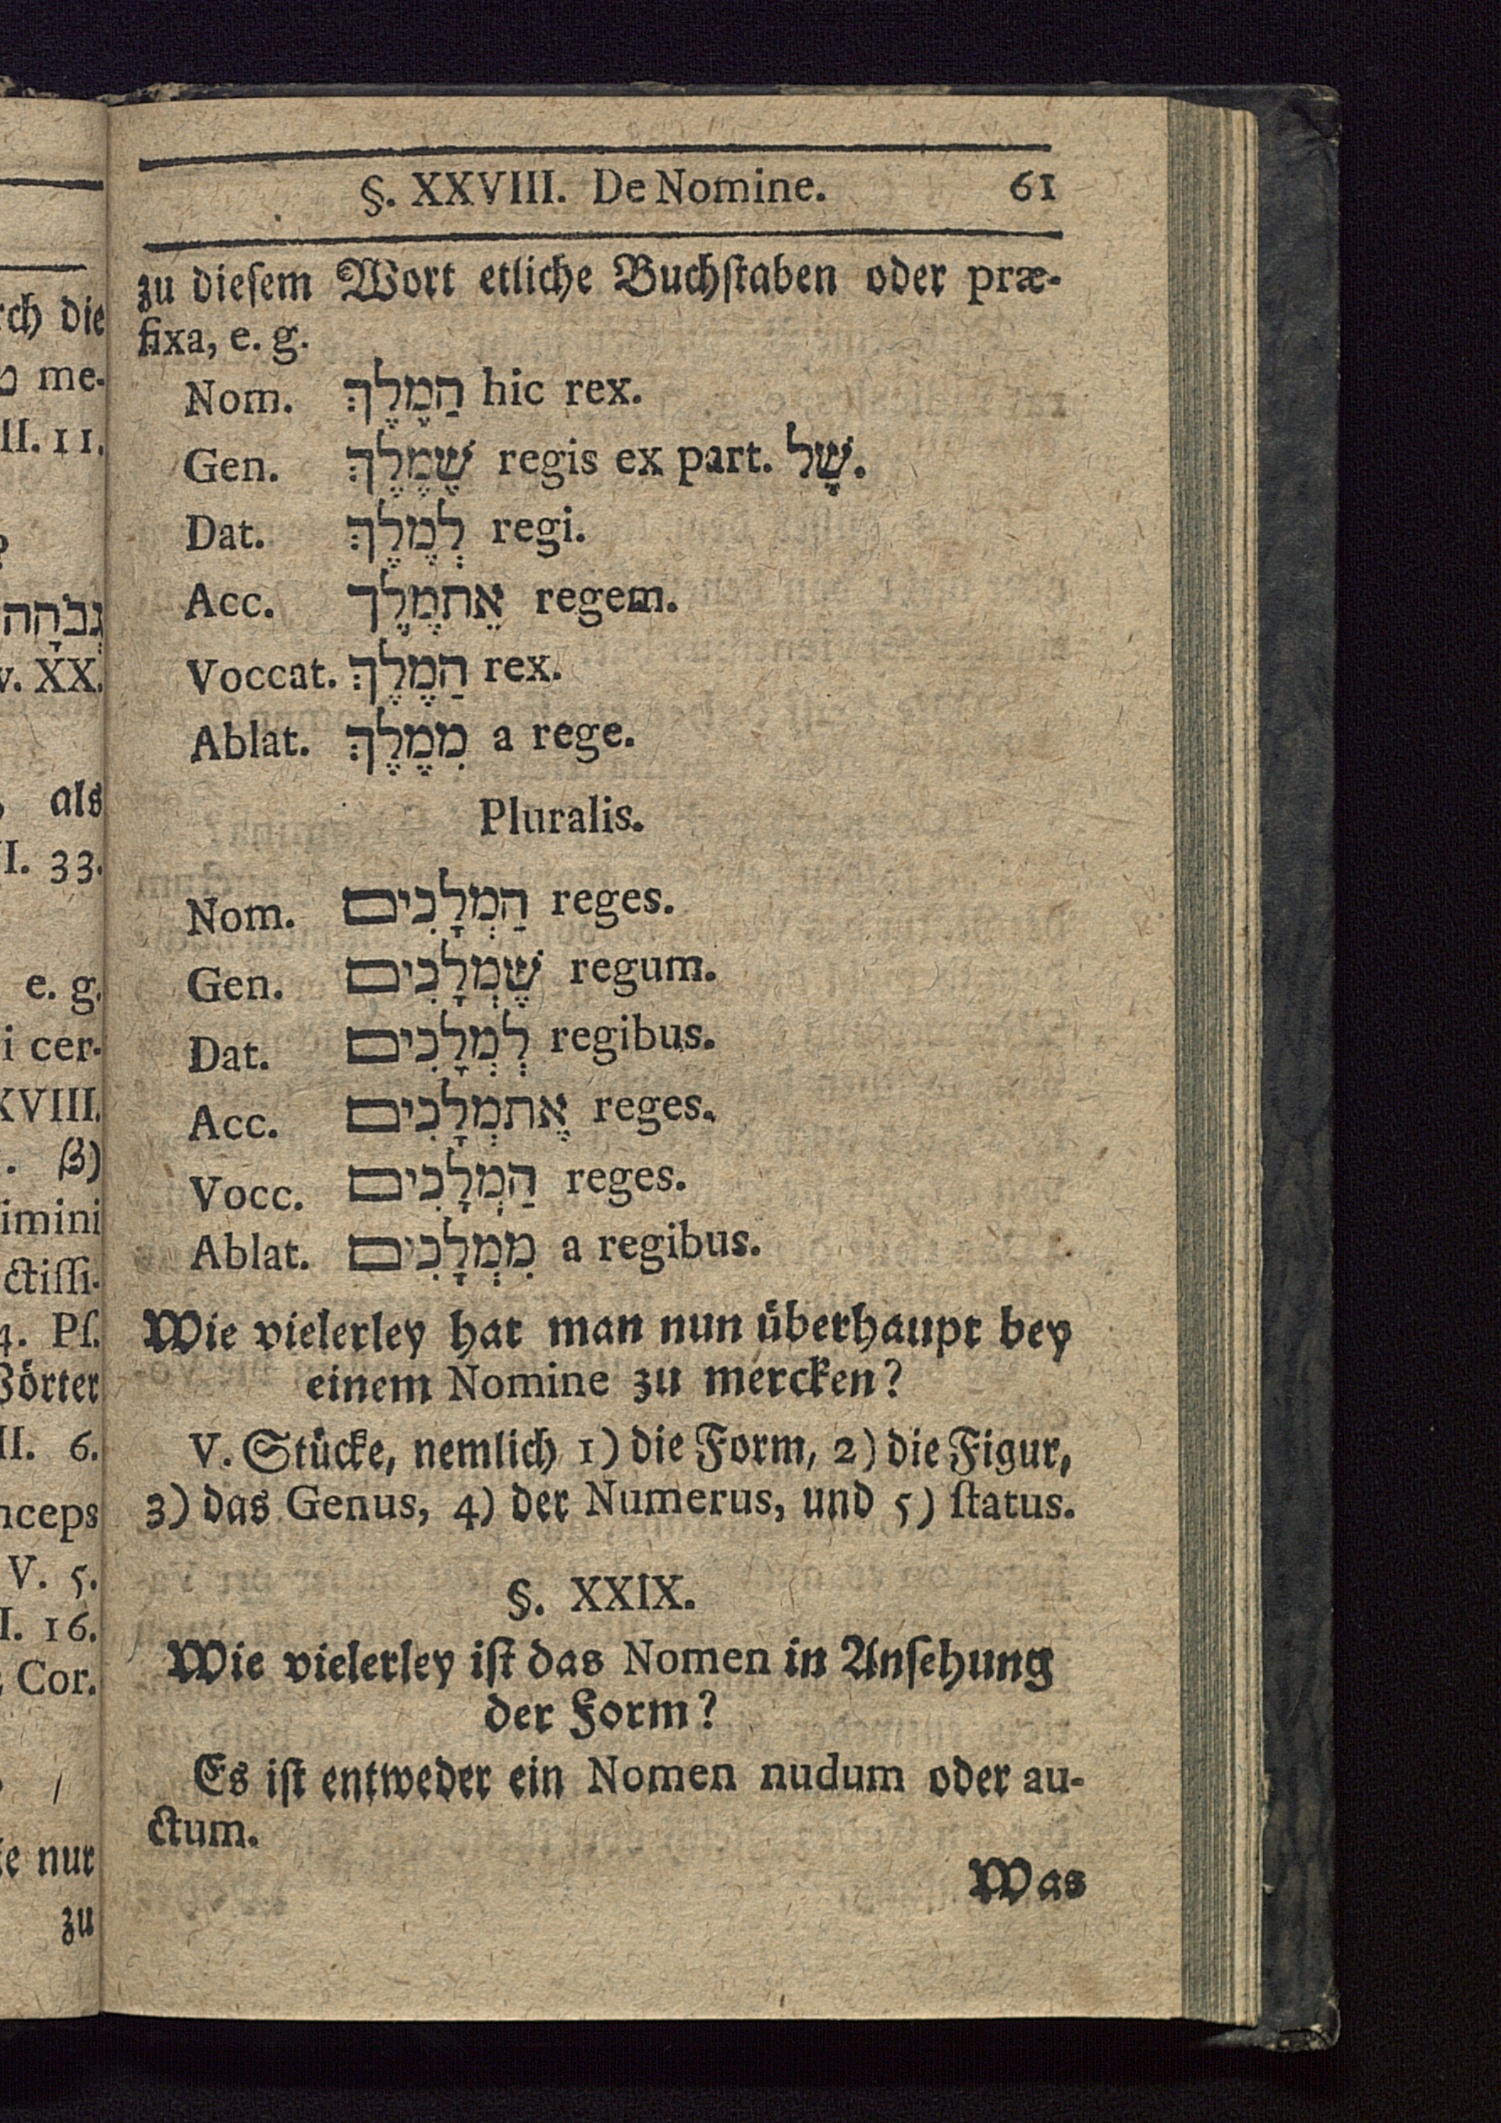 §. XXVIII. De Nomine. 61
zu diesem Wort etliche Buchstaben oder præ-
fixa, e. g.
Nom. הַמֶלֶךְ hic rex.
Gen. שֶׁמֶלֶךְ regis ex part. שֶׁל.
Dat. לְמֶלֶךְ regi.
Acc. אֵתמֶלֶך regem.
Voccat. הַמֶלֶךְ rex.
Ablat. מִמֶלֶךְ a rege.
Pluralis.
Nom. הַמְלָכִים reges.
Gen. שֶׁמְלָכִים regum.
Dat. לְמְלָכִים regibus.
Acc. אֶתמְלָכִים reges.
Vocc. הַמְלָכִים reges.
Ablat. מִמְלָכִים a regibus.
Wie vielerley hat man nun überhaupt bey
einem Nomine zu mercken?
V. Stücke, nemlich 1) die Form, 2) die Figur,
3) das Genus, 4) der Numerus, und 5) ſtatus.
§. XXIX.
Wie vielerley iſt das Nomen in Anſehung
der Form?
Es iſt entweder ein Nomen nudum oder au-
ctum.
Was